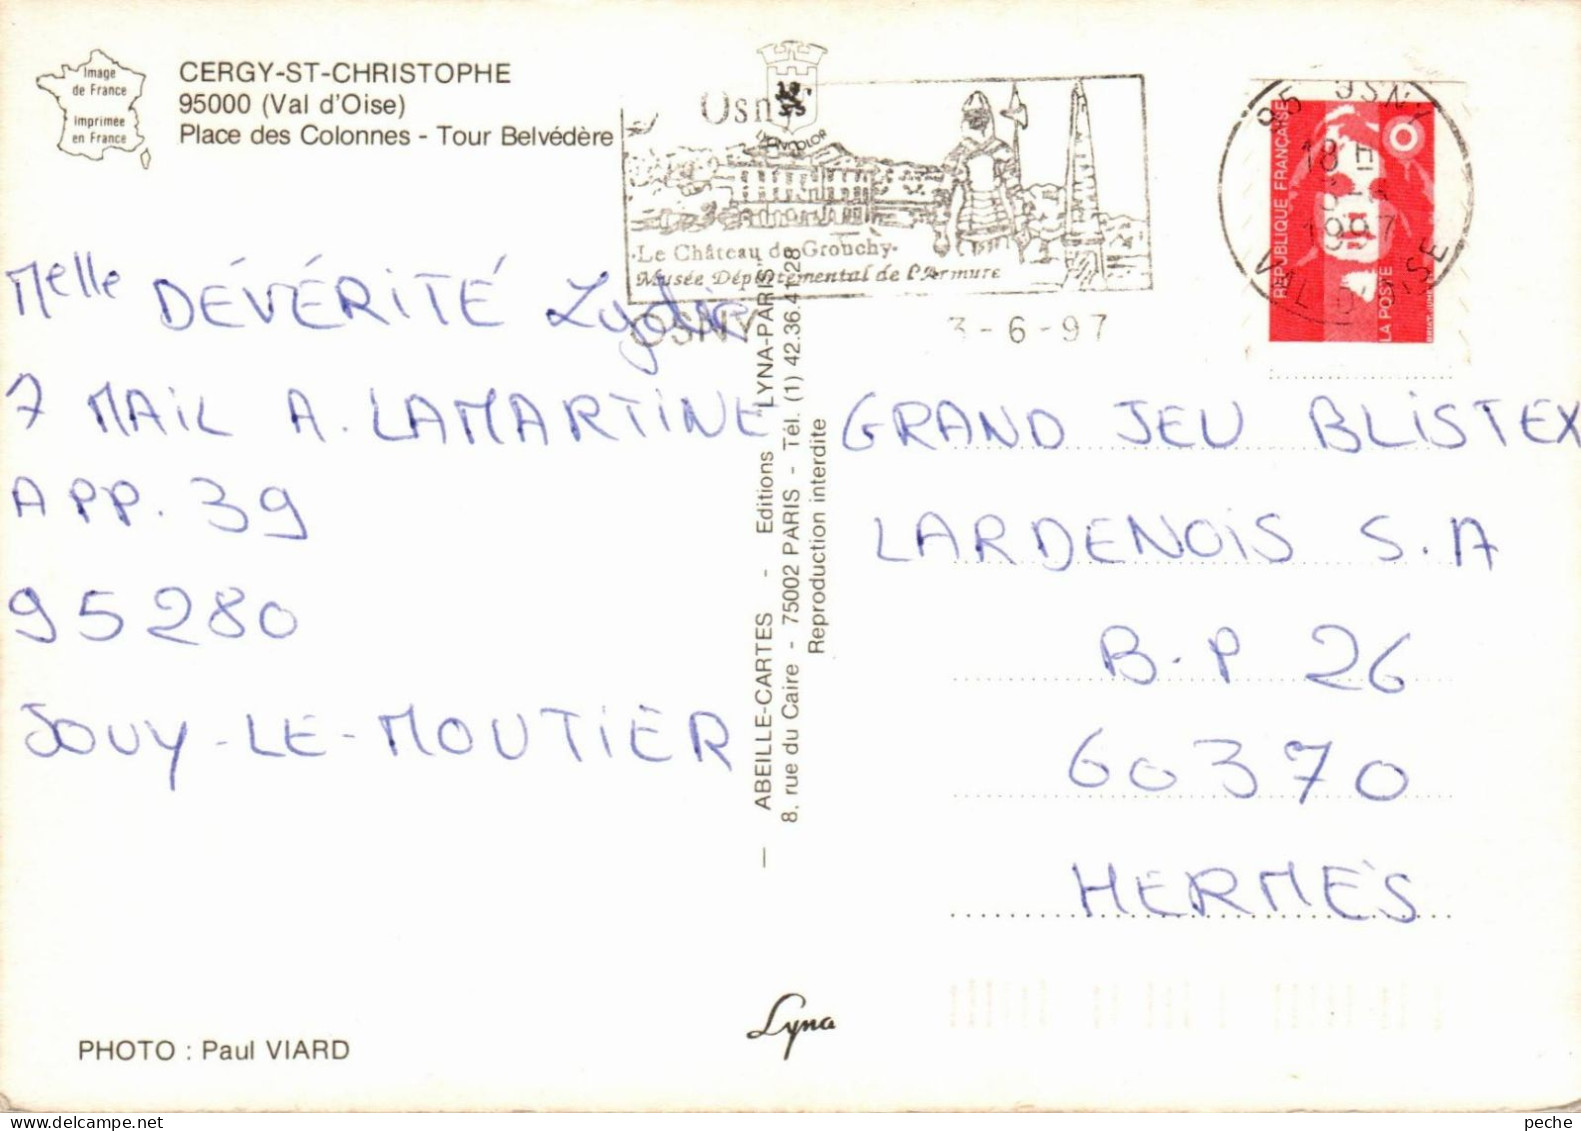 Image
de France
Imprimée
en France
CERGY-ST-CHRISTOPHE
95000 (Val d'Oise)
Place des Colonnes - Tour Belvédère
Osny
LYONCOLOR
Le Château de Grouchy
Musée Départemental de l'Armure
OSNY 3-6-97
95 OSNY
18 H
1997
VAL D'OISE
REPUBLIQUE FRANÇAISE
LA POSTE
Melle DÉVÉRITÉ Lydie
7 MAIL A. LAMARTINE
APP. 39
95280
JOUY-LE-MOUTIER
ABEILLE-CARTES - Editions "LYNA-PARIS"
8, rue du Caire - 75002 PARIS - Tél. (1) 42.36.41.28
Reproduction interdite
GRAND JEU BLISTEX
LARDENOIS S.A
B.P 26
60370
HERMES
PHOTO : Paul VIARD
Lyna
peche